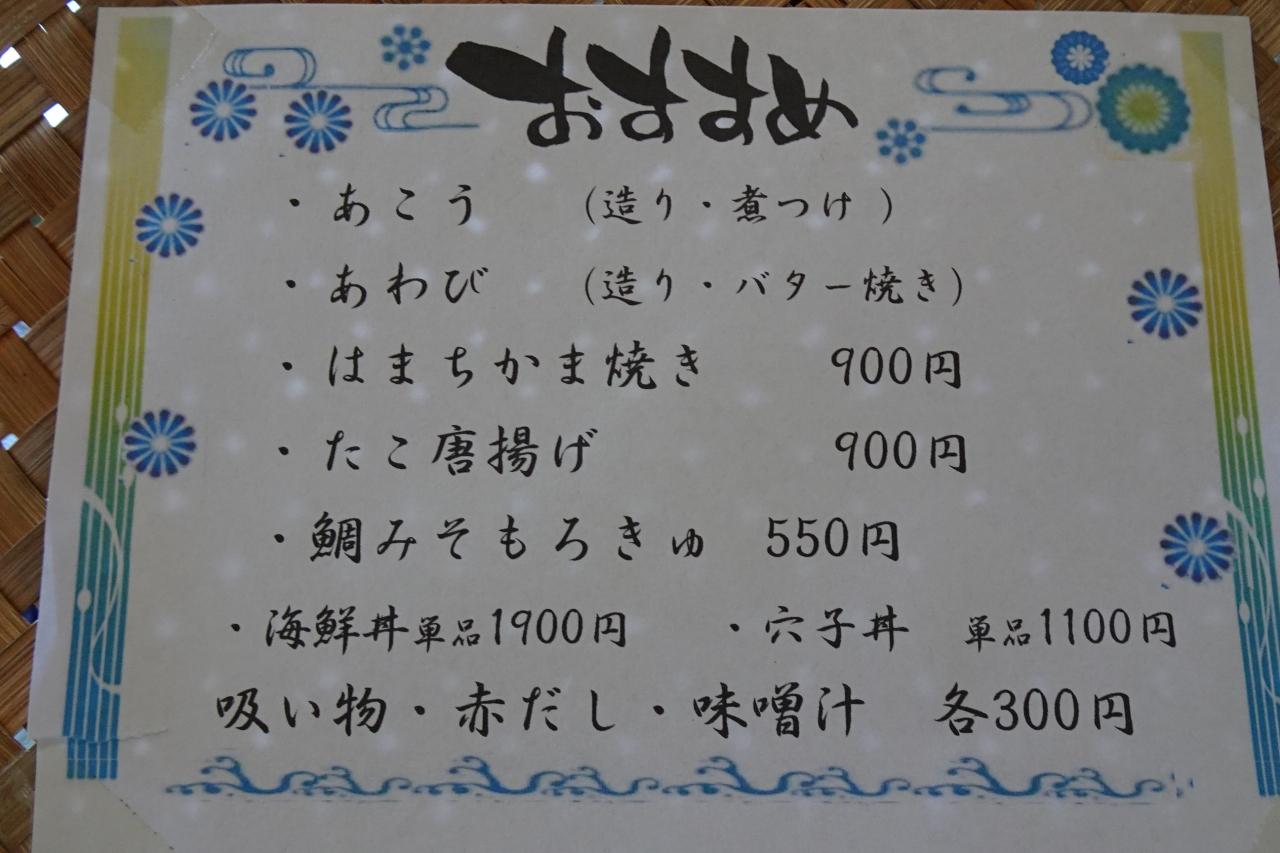 おすすめ
・あこう　（造り・煮つけ）
・あわび　（造り・バター焼き）
・はまちかま焼き　900円
・たこ唐揚げ　900円
・鯛みそもろきゅ　550円
・海鮮丼単品1900円　・穴子丼　単品1100円
吸い物・赤だし・味噌汁　各300円